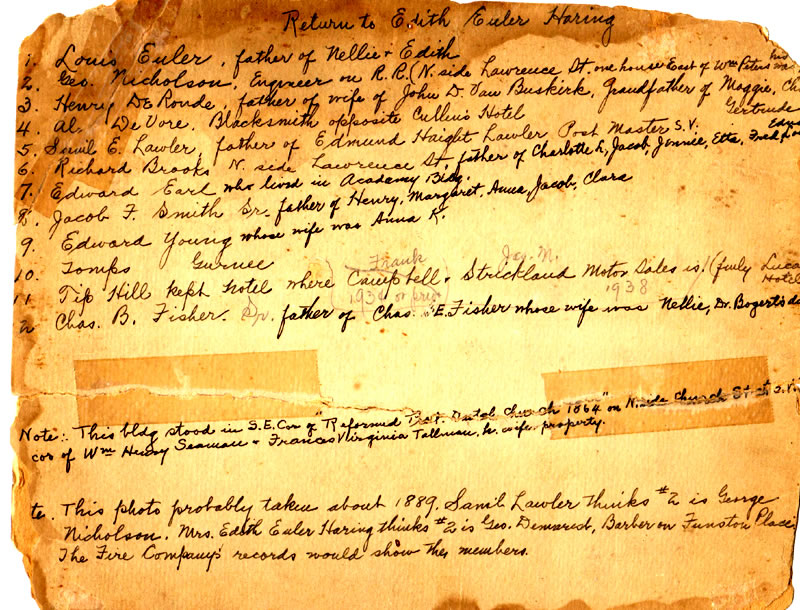 Return to Edith Euler Haring
1. Louis Euler, father of Nellie & Edith
2. Geo. Nicholson, Engineer on R.R. (N. side Lawrence St. one house East of Wm Peters his
3. Henry De Ronde, father of wife of John D. Van Buskirk, Grandfather of Maggie, Ch
4. Al. De Vore. Blacksmith opposite Cullins Hotel Gertrude
5. Saml E. Lawler, father of Edmund Haight Lawler Post Master S.V.
6. Richard Brooks N. side Lawrence St. father of Charlotte L, Jacob, Jennie, Etta, Fred
7. Edward Earl who lived in Academy Bldg.
8. Jacob F. Smith Sr. father of Henry, Margaret, Anna, Jacob, Clara
9. Edward Young whose wife was Anna K.
10. Tomps Gurnee
Frank Jas. M.
11 Tip Hill kept hotel where Campbell & Strickland Motor Sales is! (fmly Luca
(1934 or prev) 1938 Hotel
2 Chas. B. Fisher. Sr. father of Chas. E. Fisher whose wife was Nellie, Dr. Bogert's da
Note:. This bldg stood in S.E. Cor of "Reformed Prot. Dutch Church 1864" on N. side Church St at
cor of Wm Henry Seaman & Frances Virginia Tallman, h. wife. property.
te. This photo probably taken about 1889. Saml Lawler thinks #2 is George
Nicholson. Mrs. Edith Euler Haring thinks #2 is Geo. Demarest, Barber on Funston Place
The Fire Company's records would show the members.